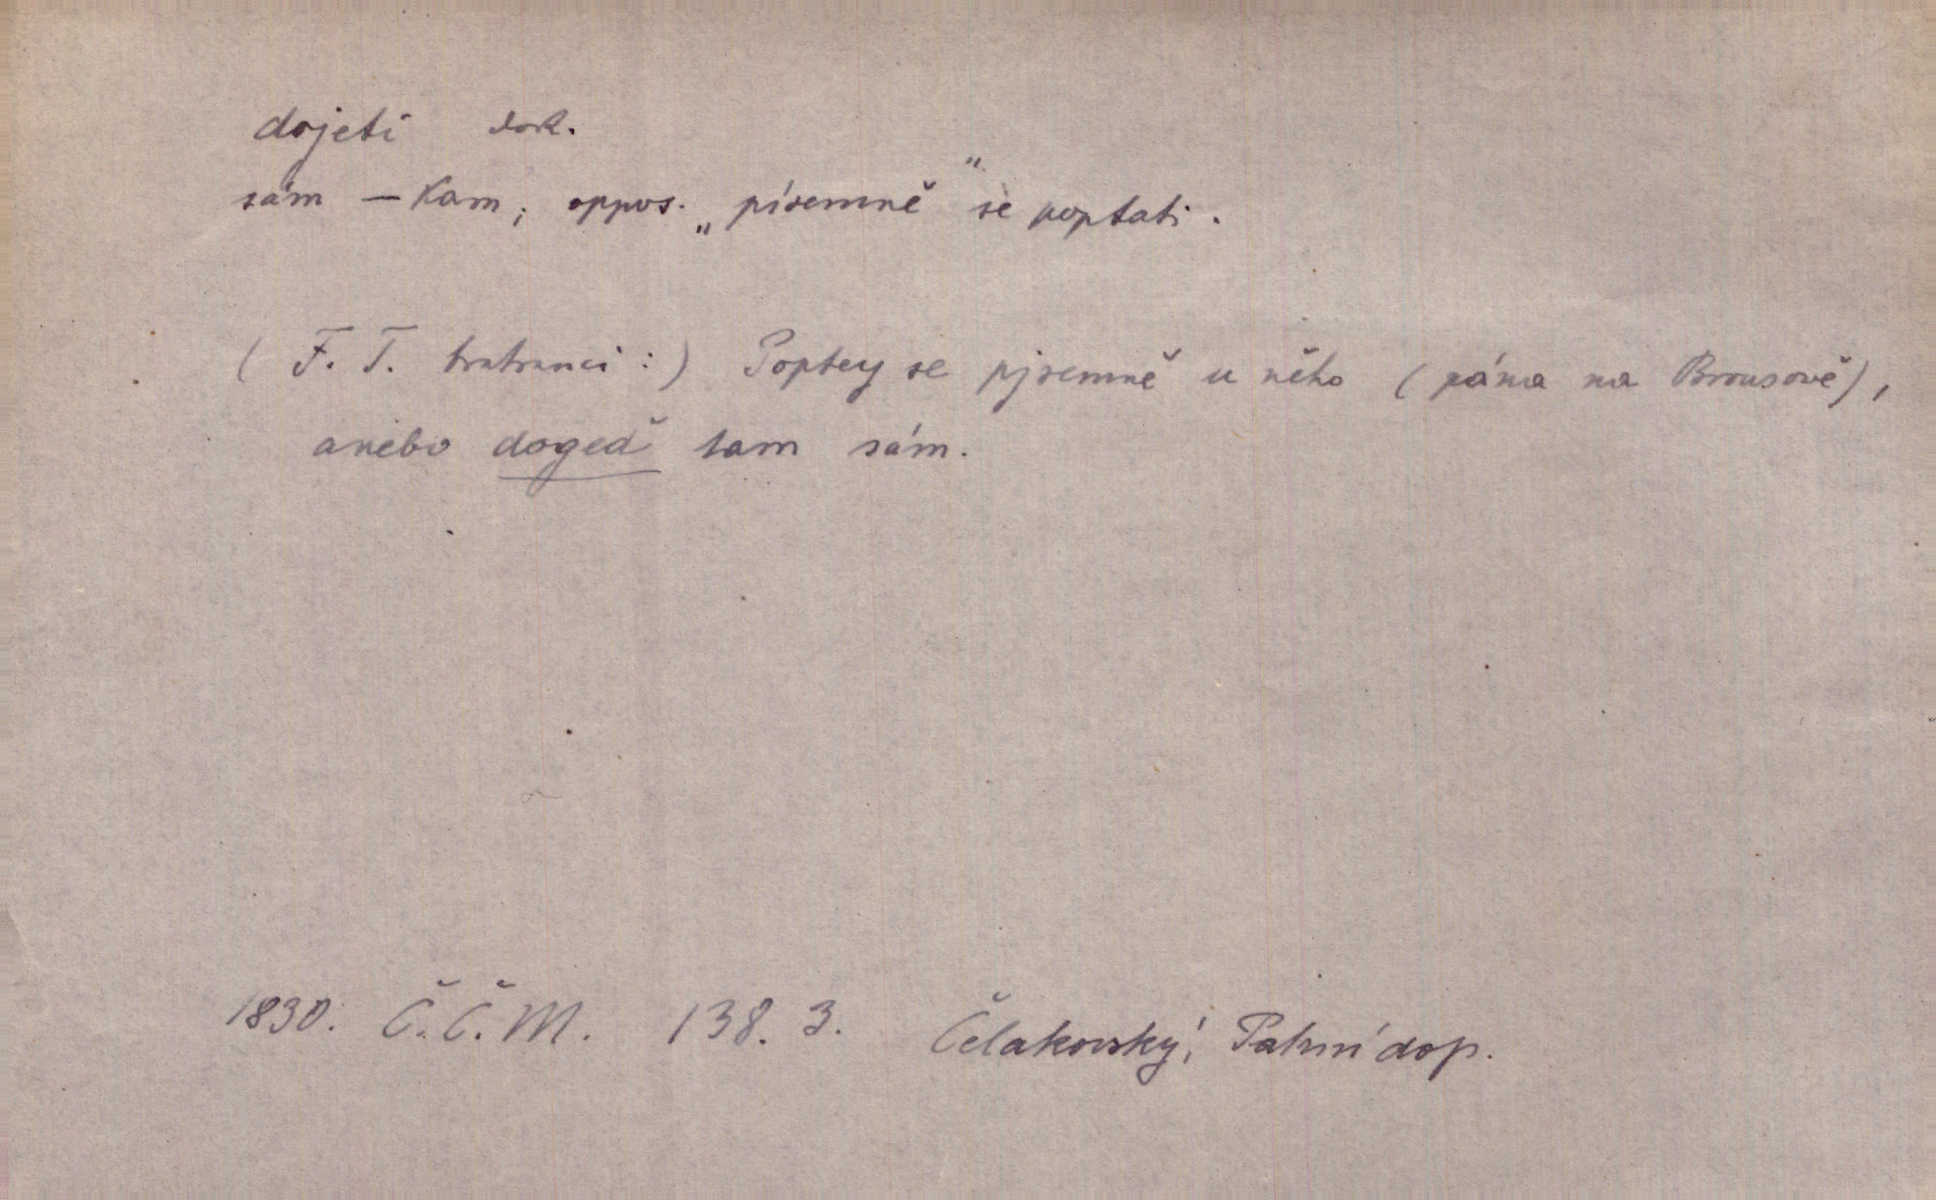 dojeti dok.
sám — kam; oppos. „písemně" se poptati.
( F. T. bratranci :) Poptey se pjsemně u něho ( pána na Brousově),
anebo dogeď tam sám.
1830. Č.Č.M. 138. 3. Čelakovský, Patrní dop.